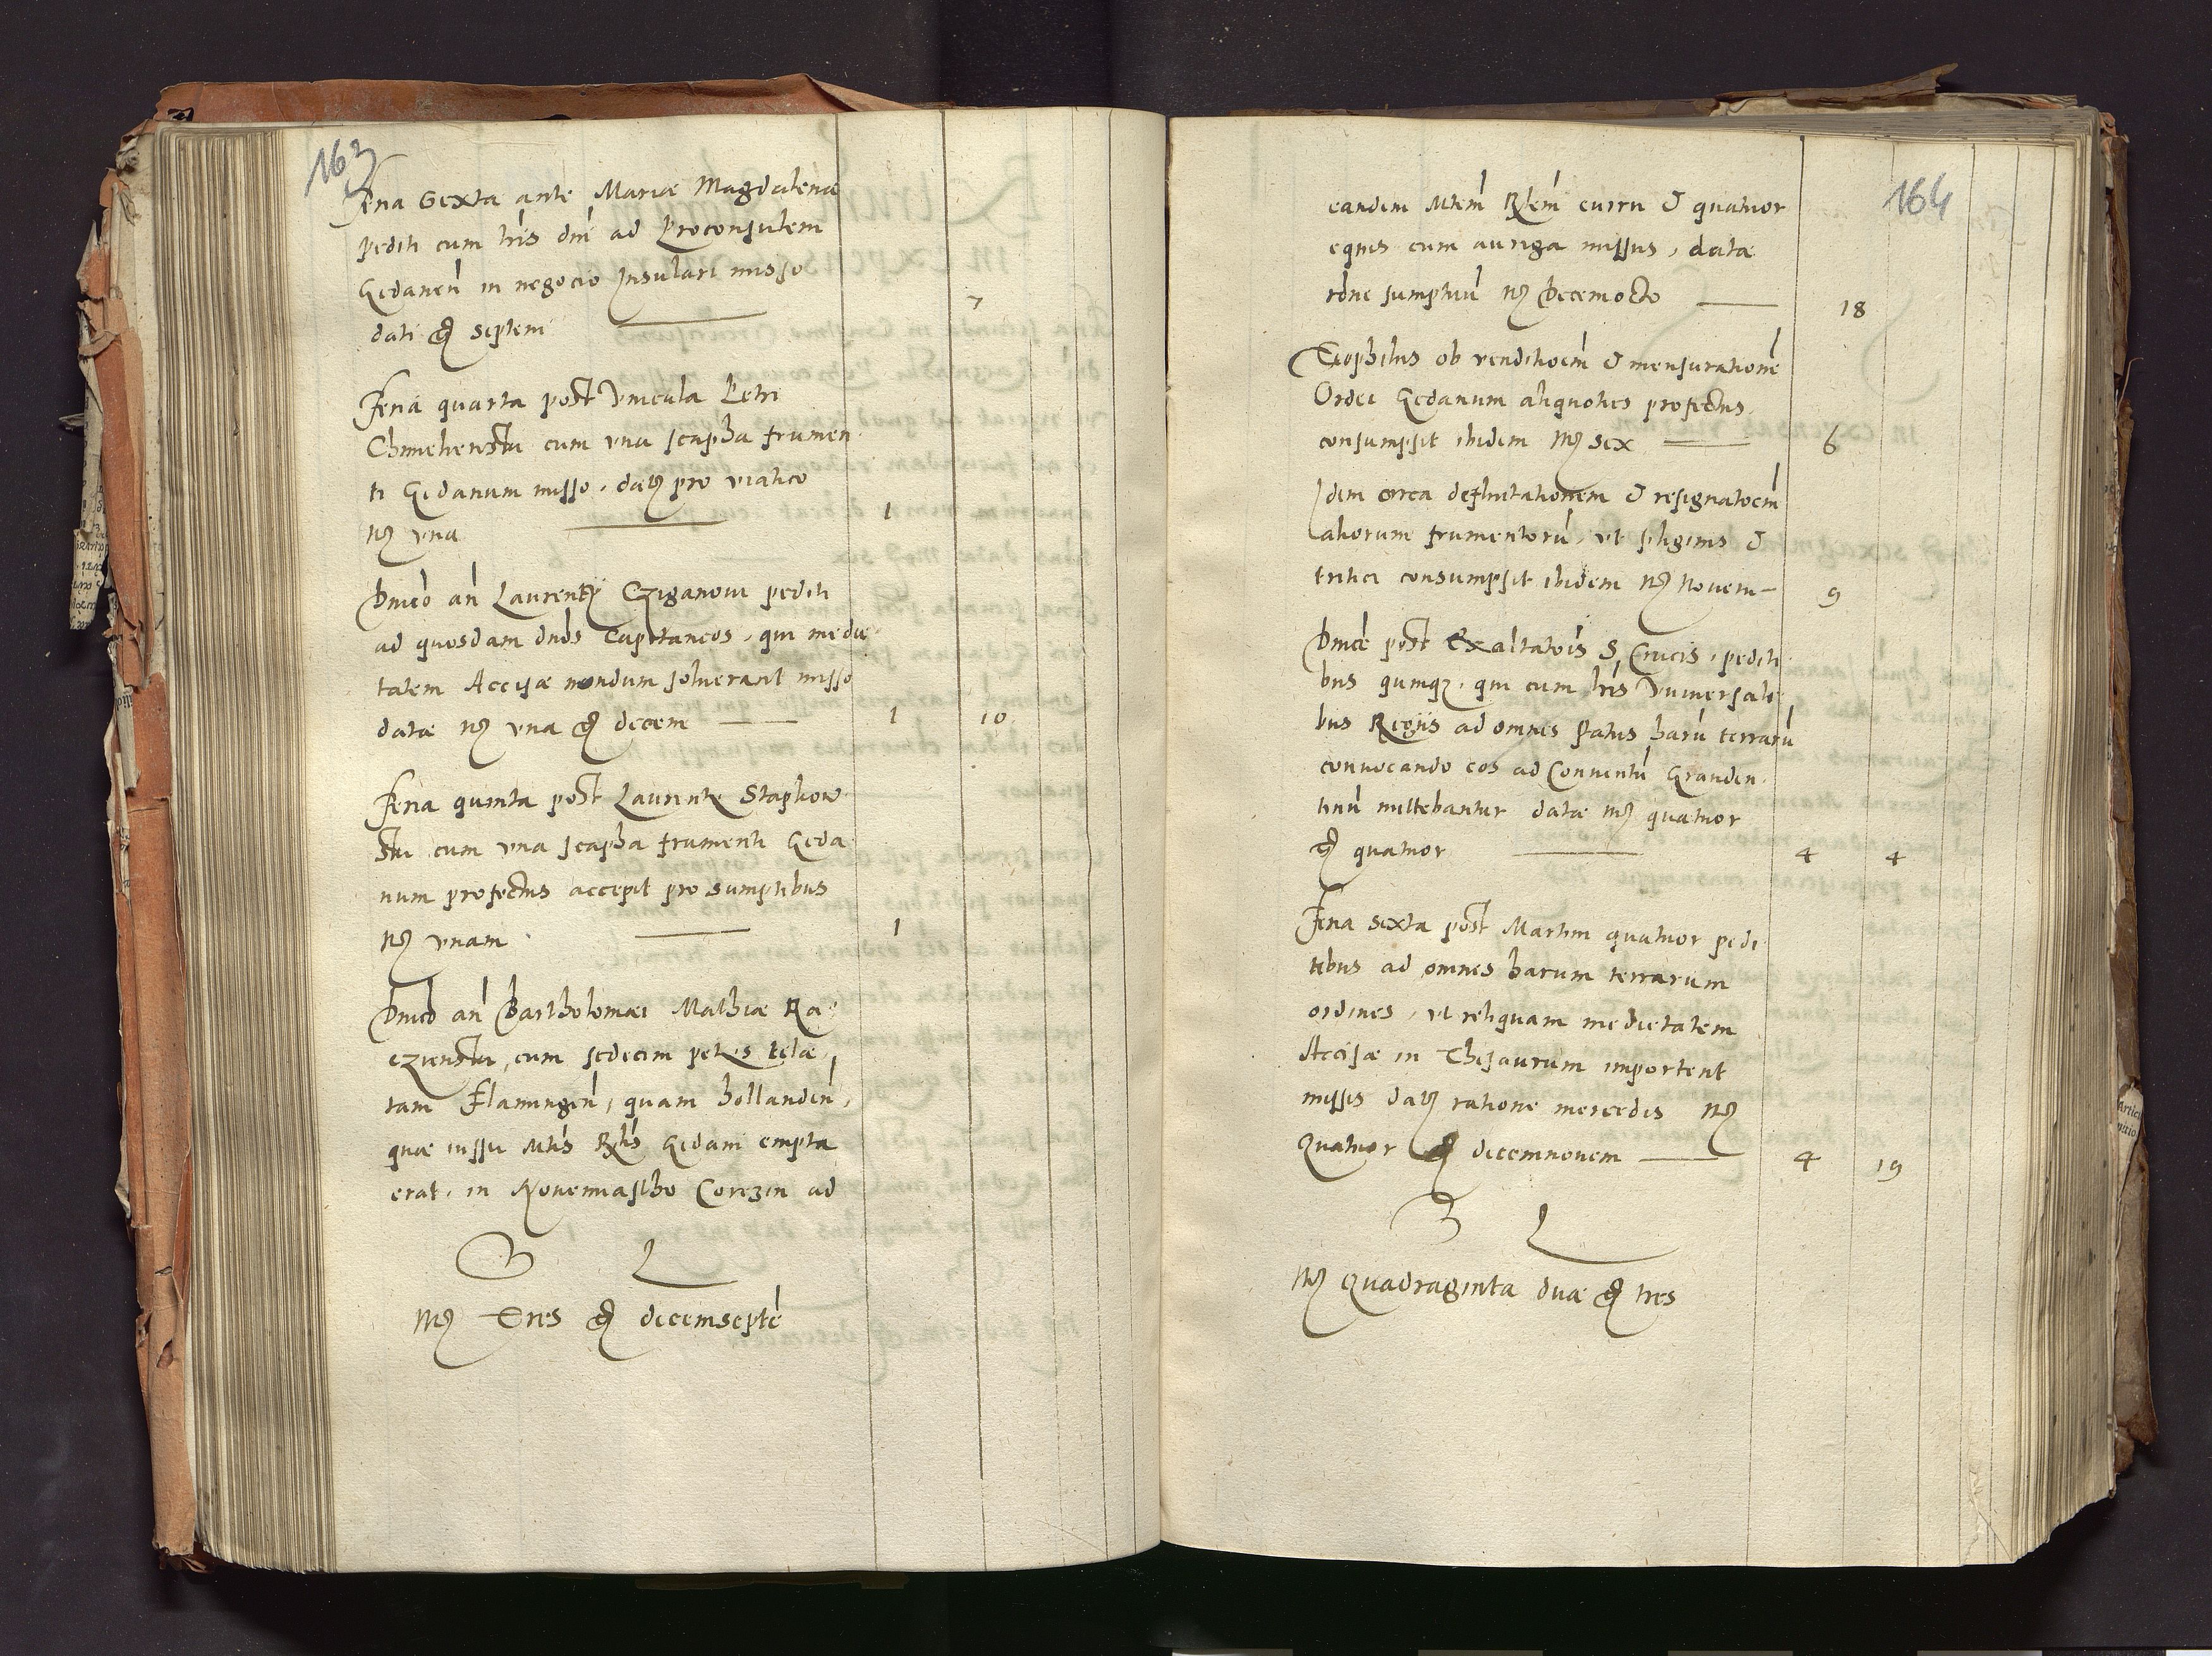 163
Feria Sexta ante Mariæ Magdalenæ
pediti cum lris dni ad Proconsulem
Gedanen in negocio Insulari misso
dati g septem 7
Feria quarta post Vincula Petri
cum vna scapha frumen
ti Gedanum misso, datz pro viatico
mz vna 1
Dnico an Laurentij Cziganowi pediti
ad quosdam dnos Capitaneos, qui medie
tatem Accisæ nondum soluerant misso
datæ mz vna g decem 1 10
Feria quinta post Laurentij Staphow
sky cum vna scapha frumenti Geda
num profectus accepit pro sumptibus
mz vnam 1
Dnico an Bartholomæi Mathiæ Ra
cziensky, cum sedecim petijs telæ,
tam Flamingen, quam hollanden,
quæ iussu Mtis Rtis Gedani empta
erat, in Corczin ad
mz Tres g decemsepte
164
eandem Mtem Rtem curru & quatuor
equis cum auriga missus, datæ
rone sumptuu mz Decemocto 18
Teophilus ob venditioem & mensurationē
Ordei Gedanum aliquoties profectus
consumpsit ibidem mz sex 6
Idem circa defluitationem & resignatoem
aliorum frumentorū, vt siliginis &
tritici consumpsit ibidem mz Nouem 9
Dnico post Exaltatois S, Crucis, pediti
bus quinqz, qui cum lris Vniuersali
bus Regijs ad omnes status harū terrarū
conuocando eos ad Conuentū Grauden
tinū mittebantur datæ mz quatuor
g quatuor 4 4
Feria sexta post Martini quatuor pedi
tibus ad omnes harum terrarum
ordines, vt reliquam medietatem
Accisæ in Thesaurum importent
missis datz ratione mercedis mz
Quatuor g decemnouem 4 19
mz Quadraginta duæ g tres